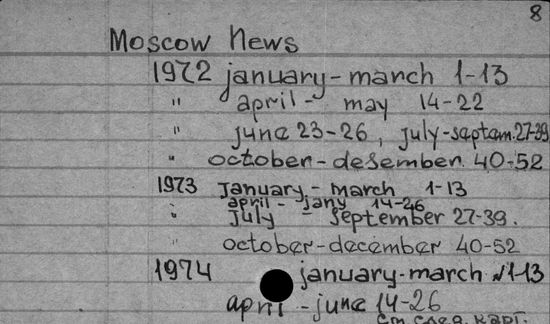 8
Moscow News
1972 january - march 1-13
" april - may 14-22
" june 23-26, july-septem. 27-39
" october - desember 40-52
1973 january - march 1-13
april - jany 14-26
" July - September 27-39.
" october-december 40-52
1974 january-march №1-13
april - june 14-26
См. след. карт.